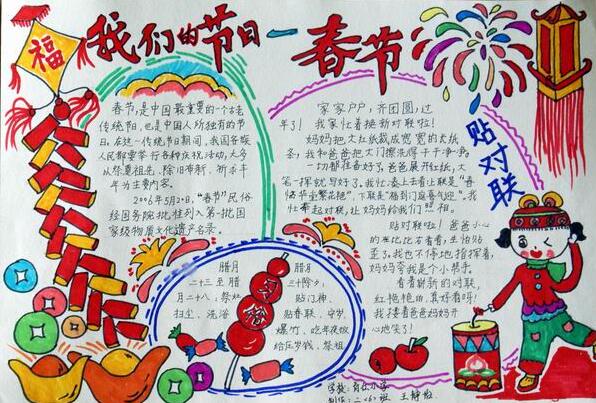 福
我们的节日—春节
春节,是中国最重要的一个古老
传统节,也是中国人所独有的节
日。在这一传统节日期间,我国各族
人民都要举行各种庆祝活动,大多
以祭奠祖先、除旧布新、祈求丰
年为主要内容。
2006年5月20日,“春节”民俗
经国务院批准列入第一批国
家级物质文化遗产名录。
腊月
二十三至腊
月二十八,祭灶
扫尘、洗浴
腊月
三十除夕:
贴门神、
贴春联、守岁、
爆竹、吃年夜饭
给压岁钱、祭祖
家家户户,齐团圆,过
年了!我家忙着换新对联啦!
妈妈把大红纸裁成宽宽的大纸
条,我和爸爸把大门擦洗得干干净净,
一切都准备好了,爸爸展开红纸,大
笔一挥就写好了。我忙凑上去看让联是“春
临华堂繁花艳”,下联是“福到门庭喜气迎”。我
忙拿起对联,让妈妈给我们照相。
贴对联
贴对联啦!爸爸小心
的左比比右看看,生怕贴
歪了。我也不停地指挥着,
妈妈夸我是个小帮手。
看着崭新的对联,
红艳艳的,真好看呀!
我搂着爸爸妈妈开
心地笑了!
学校:育红小学
制作:二(6)班 王静怡